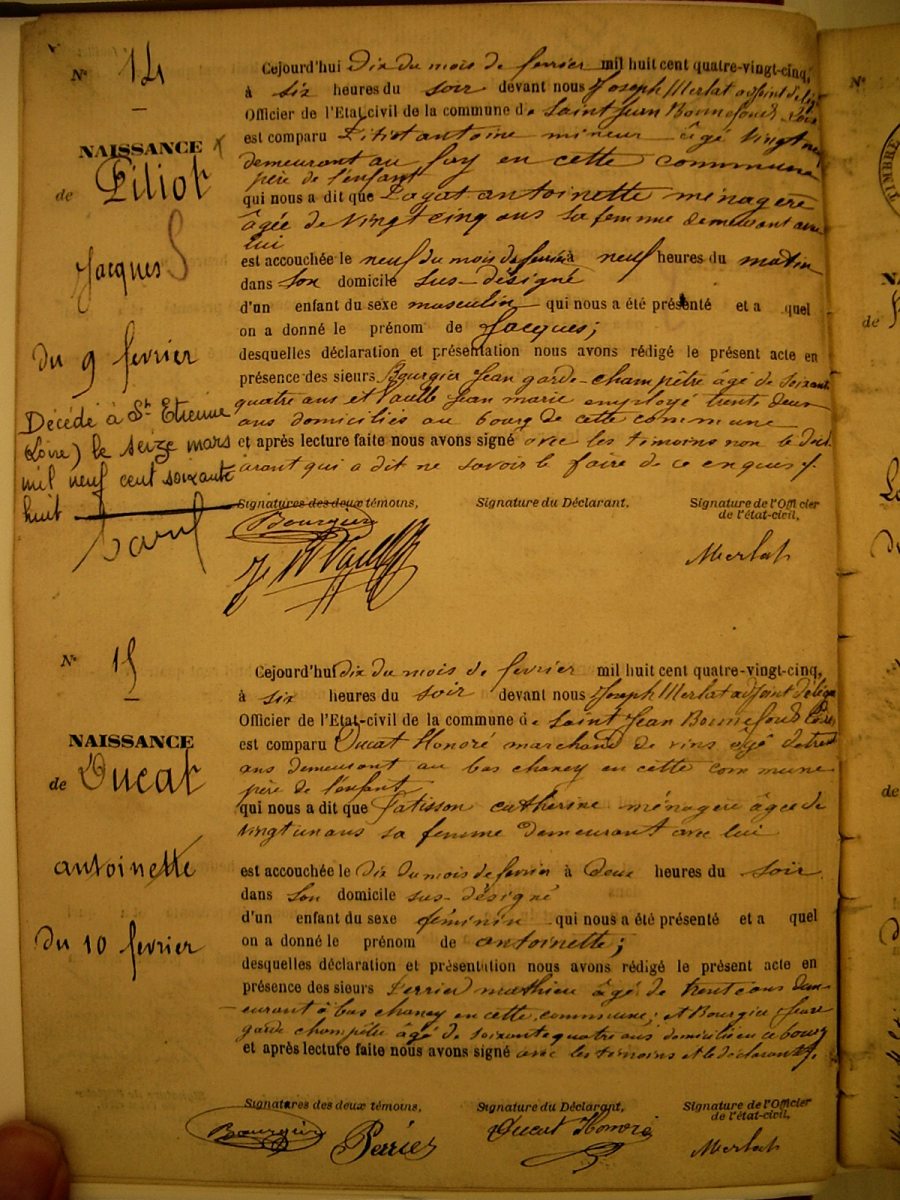 N° 14
NAISSANCE
de Piliot
Jacques
du 9 fevrier
Décédé à St Etienne
(Loire) le seize mars
mil neuf cent soixante
huit
Cejourd'hui dix du mois de fevrier mil huit cent quatre-vingt-cinq,
à six heures du soir devant nous Joseph Merlat adjoint délég
Officier de l'Etat civil de la commune de Saint Jean Bonnefonds Loire
est comparu Piliot antoine mineur âgé vingt neuf
demeurant au fay en cette commune
père de l'enfant
qui nous a dit que Pagat antoinette ménagère
âgée de vingt cinq ans sa femme demeurant avec
lui
est accouchée le neuf du mois de fevrier à neuf heures du matin
dans son domicile sus-désigné
d'un enfant du sexe masculin qui nous a été présenté et a quel
on a donné le prénom de Jacques;
desquelles déclaration et présentation nous avons rédigé le présent acte en
présence des sieurs Bourgier Jean garde-champêtre âgé de soixante
quatre ans et Jean marie employé trente deux
ans domiciliés au bourg de cette commune
et après lecture faite nous avons signé avec les témoins non le décl
arant qui a dit ne savoir le faire de ce enquis
Signatures des deux témoins, Signature du Déclarant, Signature de l'Officier
de l'état-civil,
Bourgier
Merlat
N° 15
NAISSANCE
de Ducat
antoinette
du 10 fevrier
Cejourd'hui dix du mois de fevrier mil huit cent quatre-vingt-cinq,
à six heures du soir devant nous Joseph Merlat adjoint délégué
Officier de l'Etat-civil de la commune de Saint Jean Bonnefonds Loire
est comparu Ducat Honoré marchand de vins âgé de trente
ans demeurant au bas chaney en cette commune
père de l'enfant
qui nous a dit que Patisson catherine ménagère âgée de
vingt un ans sa femme demeurant avec lui
est accouchée le dix du mois de fevrier à deux heures du soir
dans son domicile sus-désigné
d'un enfant du sexe féminin qui nous a été présenté et a quel
on a donné le prénom de antoinette;
desquelles déclaration et présentation nous avons rédigé le présent acte en
présence des sieurs Perrier mathieu âgé de trente ans dem
eurant à bas chaney en cette commune; et Bourgier Jean
garde champêtre âgé de soixante quatre ans domicilié en ce bourg
et après lecture faite nous avons signé avec les témoins et le déclarant
Signatures des deux témoins, Signature du Déclarant, Signature de l'Officier
de l'état-civil,
Bourgier Perrier Ducat Honoré Merlat